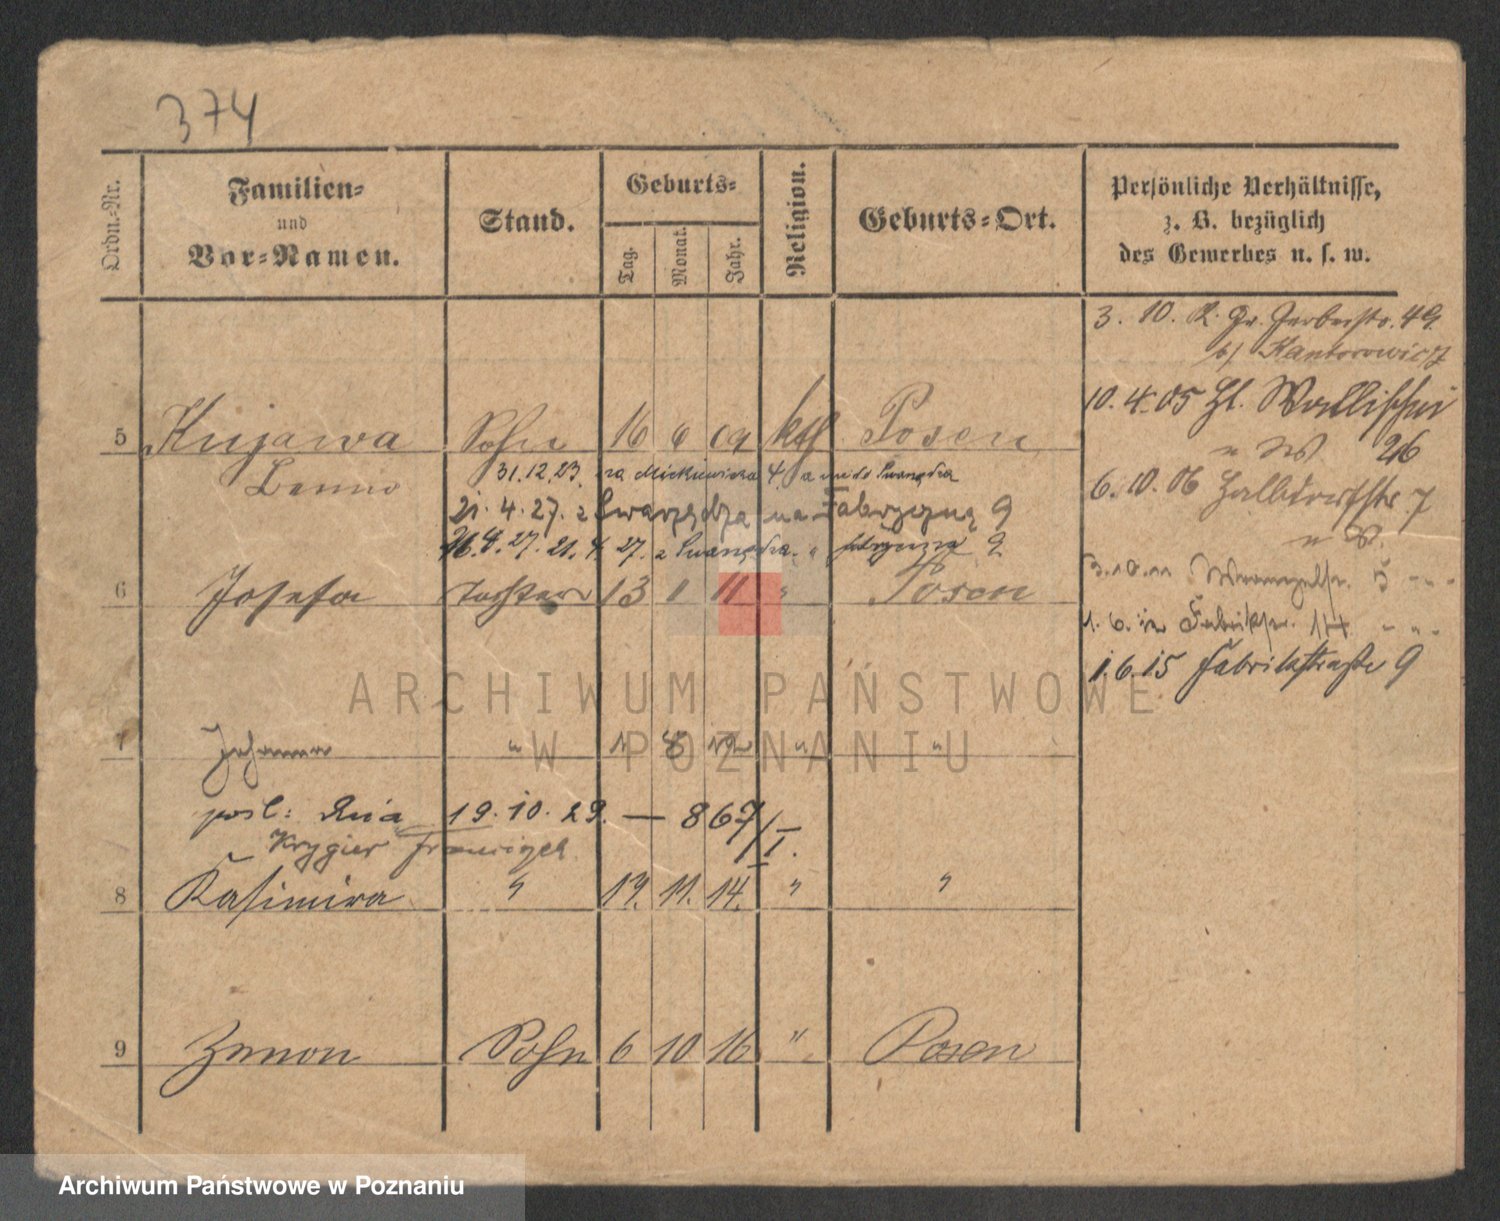 374
Ordn.-Nr.
Familien-
und
Vor-Namen.
Stand.
Geburts-
Tag.
Monat.
Jahr.
Religion.
Geburts-Ort.
Persönliche Verhältnisse,
z. B. bezüglich
des Gewerbes u. s. w.
3. 10. Gr. Gerberstr. 49
b/ Kantorowicz
10. 4. 05 Gl. Wallischei
26
5 Kujawa Sohn 16 6 09 kth Posen
Benno
31.12.23 na Mickiewicza 4
6. 10. 06 7
21. 4. 27. z Swarzędza na Fabryczną 9
21. 4. 27. z Swarzędza " fabryczna 9
6 Josefa Tochter 13 1 11 " Posen
3.10.11 Wrangelstr. 5 " "
1. 6. 12 Fabrikstr. 14 " "
1.6.15 Fabrikstraße 9
ARCHIWUM PAŃSTWOWE
W POZNANIU
7 Johanna " 1 8 12 " "
posl: dnia 19. 10. 29. — 867/I.
Krygier Franciszek
8 Kasimira " 19. 11. 14. " "
9 Zenon Sohn 6 10 16 " Posen
Archiwum Państwowe w Poznaniu